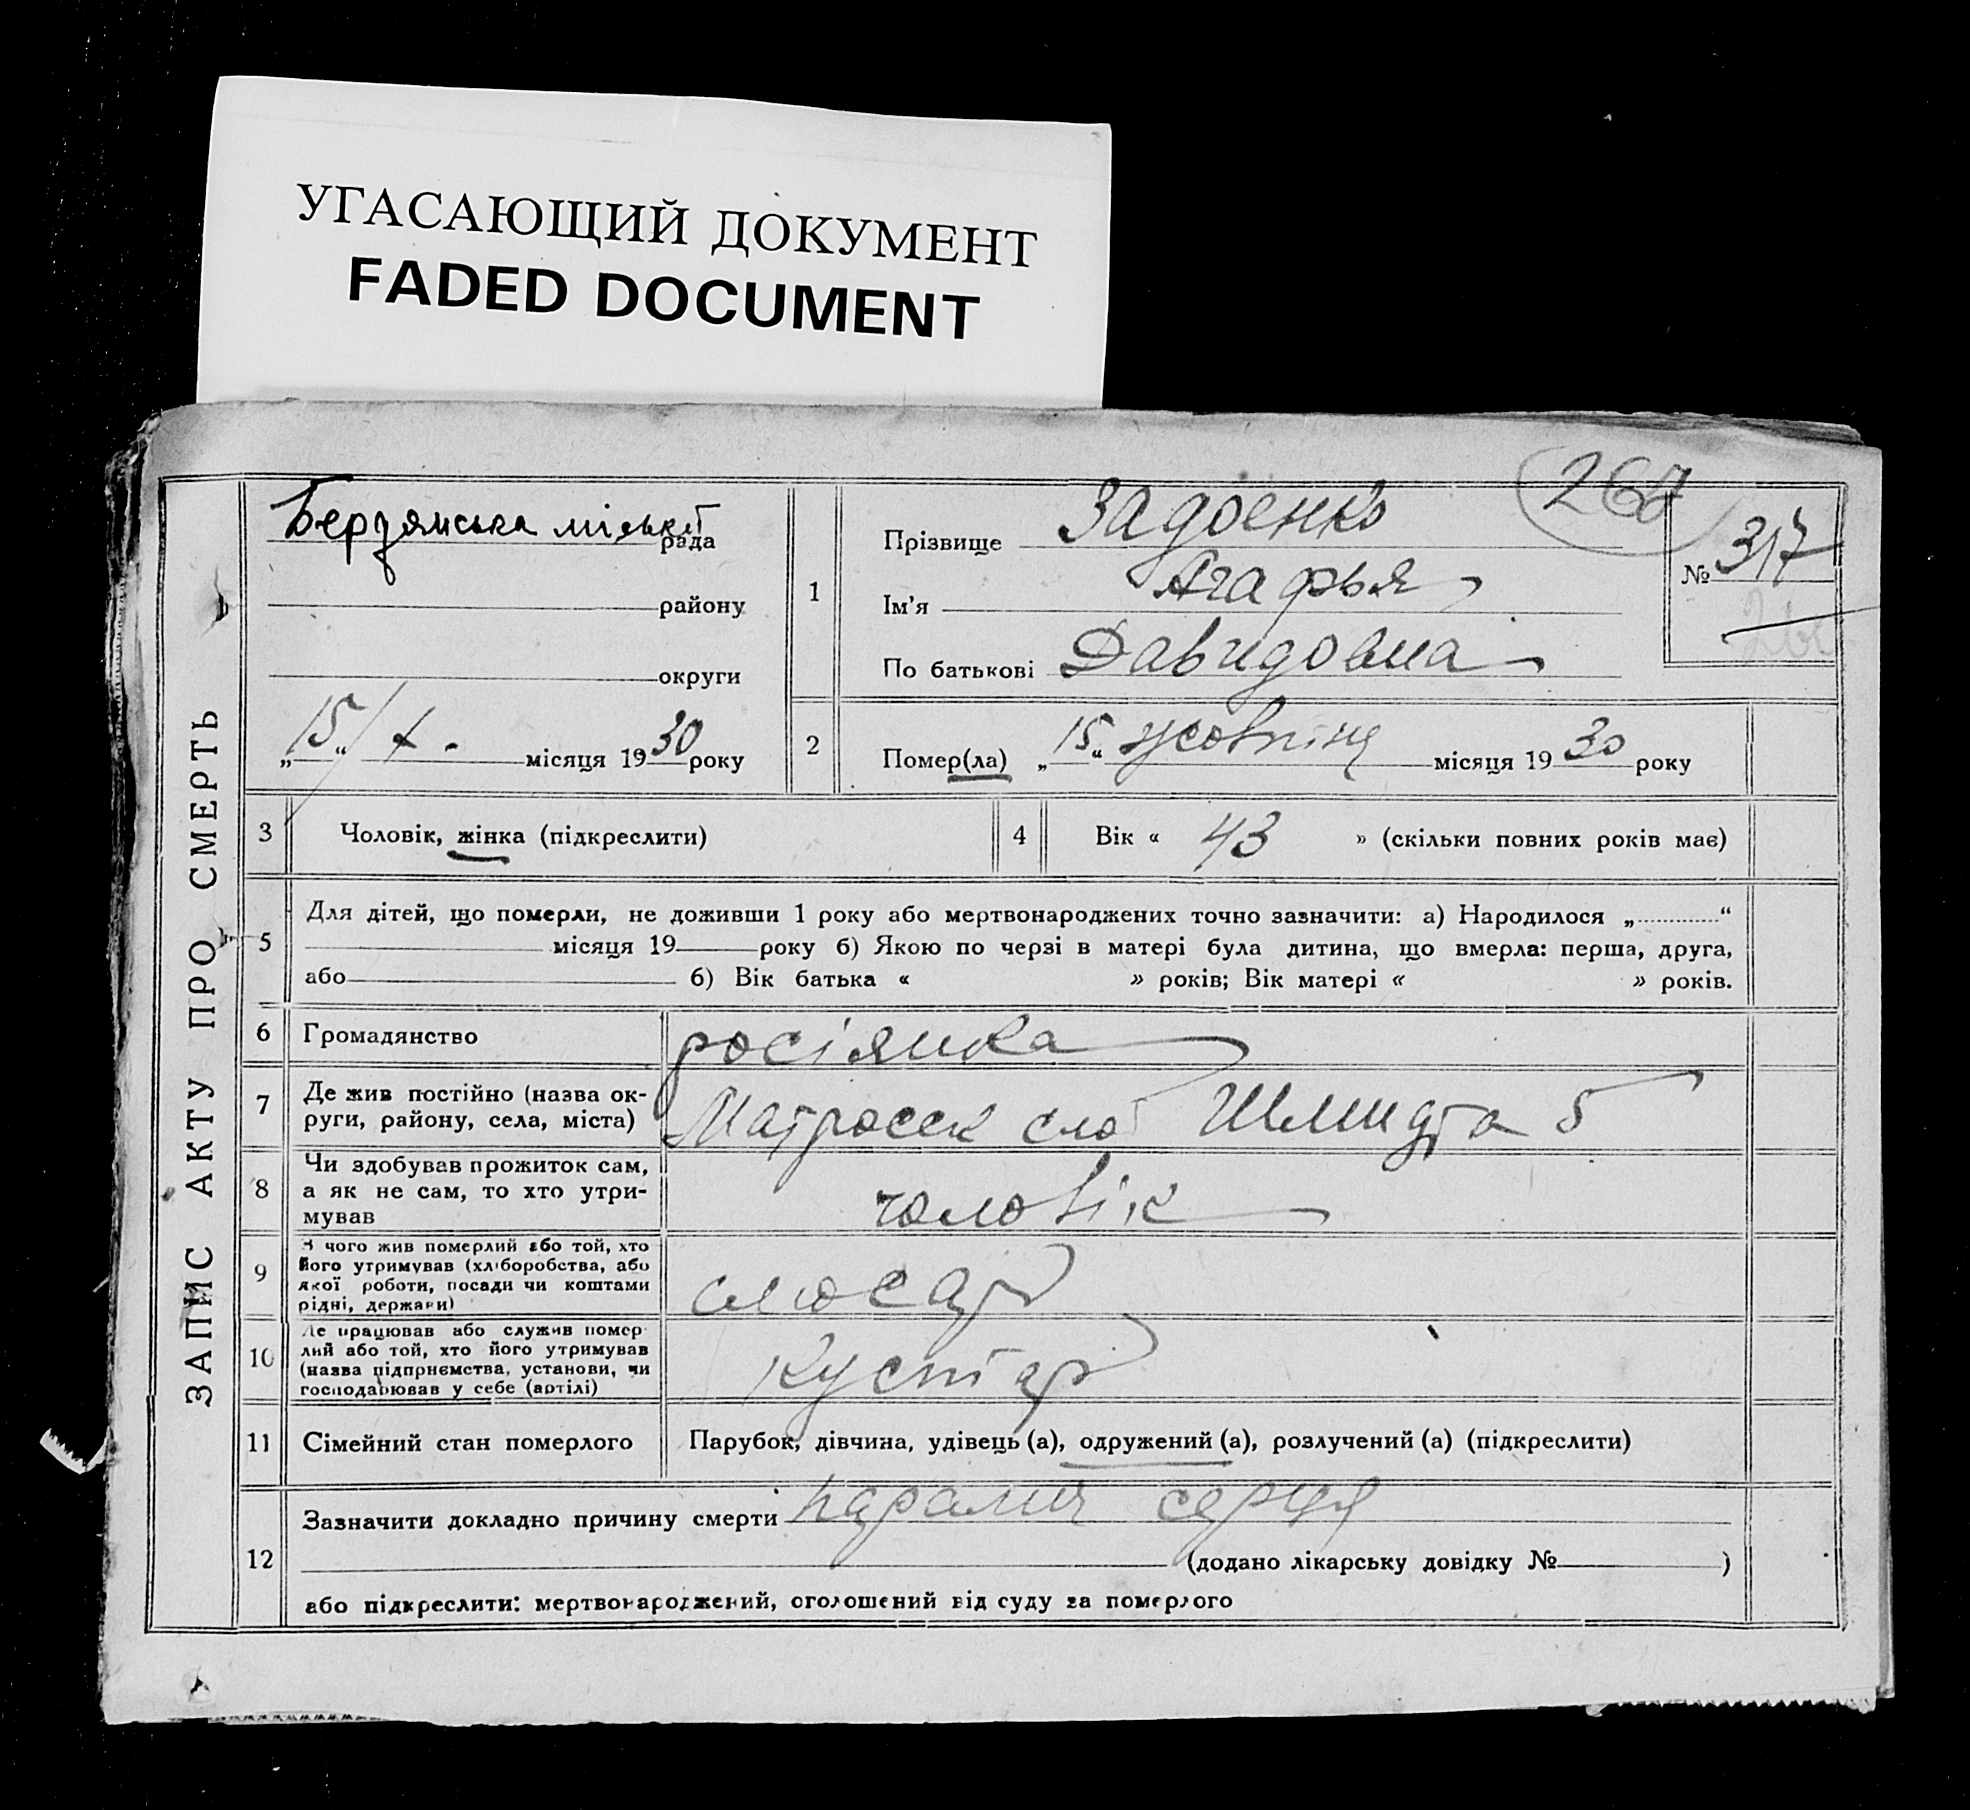 УГАСАЮЩИЙ ДОКУМЕНТ
FADED DOCUMENT
ЗАПИС АКТУ ПРО СМЕРТЬ
Бердянська міська рада
району
округи
„15“ / X. місяця 1930 року
267
№ 317
1 Прізвище Задоенко
Ім'я Агафья
По батькові Давидовна
2 Помер(ла) „15“ жовтня місяця 1930 року
3 Чоловік, жінка (підкреслити)
4 Вік « 43 » (скільки повних років має)
5 Для дітей, що померли, не доживши 1 року або мертвонароджених точно зазначити: а) Народилося „ “
місяця 19 року б) Якою по черзі в матері була дитина, що вмерла: перша, друга,
або б) Вік батька « » років; Вік матері « » років.
6 Громадянство росіянка
7 Де жив постійно (назва ок-
руги, району, села, міста) Матросск слоб Шмидта 5
8 Чи здобував прожиток сам,
а як не сам, то хто утри-
мував чоловік
9 З чого жив померлий або той, хто
його утримував (хліборобства, або
якої роботи, посади чи коштами
рідні, держави) слюсар
10 Де працював або служив помер-
лий або той, хто його утримував
(назва підприємства, установи, чи
господарював у себе (артілі) Кустар
11 Сімейний стан померлого Парубок, дівчина, удівець (а), одружений (а), розлучений (а) (підкреслити)
12 Зазначити докладно причину смерти параліч серця
(додано лікарську довідку № )
або підкреслити: мертвонароджений, оголошений від суду за померлого